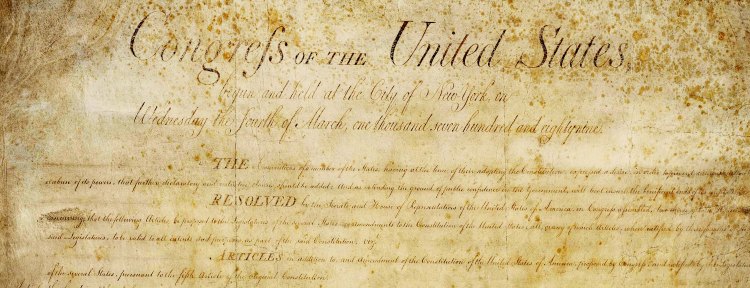 Congreſs OF THE United States,
begun and held at the City of New York, on
Wednesday the fourth of March, one thousand seven hundred and eighty nine.
THE Conventions of a number of the States, having at the time of their adopting the Constitution, expressed a desire, in order to prevent
of its powers, that further declaratory and restrictive clauses should be added: And as extending the ground of public confidence in the Government, will best ensure the beneficent ends of
RESOLVED by the Senate and House of Representatives of the United States of America, in Congreſs aſsembled, two thirds of
concurring, that the following Articles be proposed to the Legislatures of the several States, as amendments to the Constitution of the United States, all, or any of which Articles, when ratified by three fourths of
said Legislatures, to be valid to all intents and purposes, as part of the said Constitution; viz.
ARTICLES in addition to, and Amendment of the Constitution of the United States of America, proposed by Congreſs, and ratified by the Legislatures
of the several States, pursuant to the fifth Article of the original Constitution.